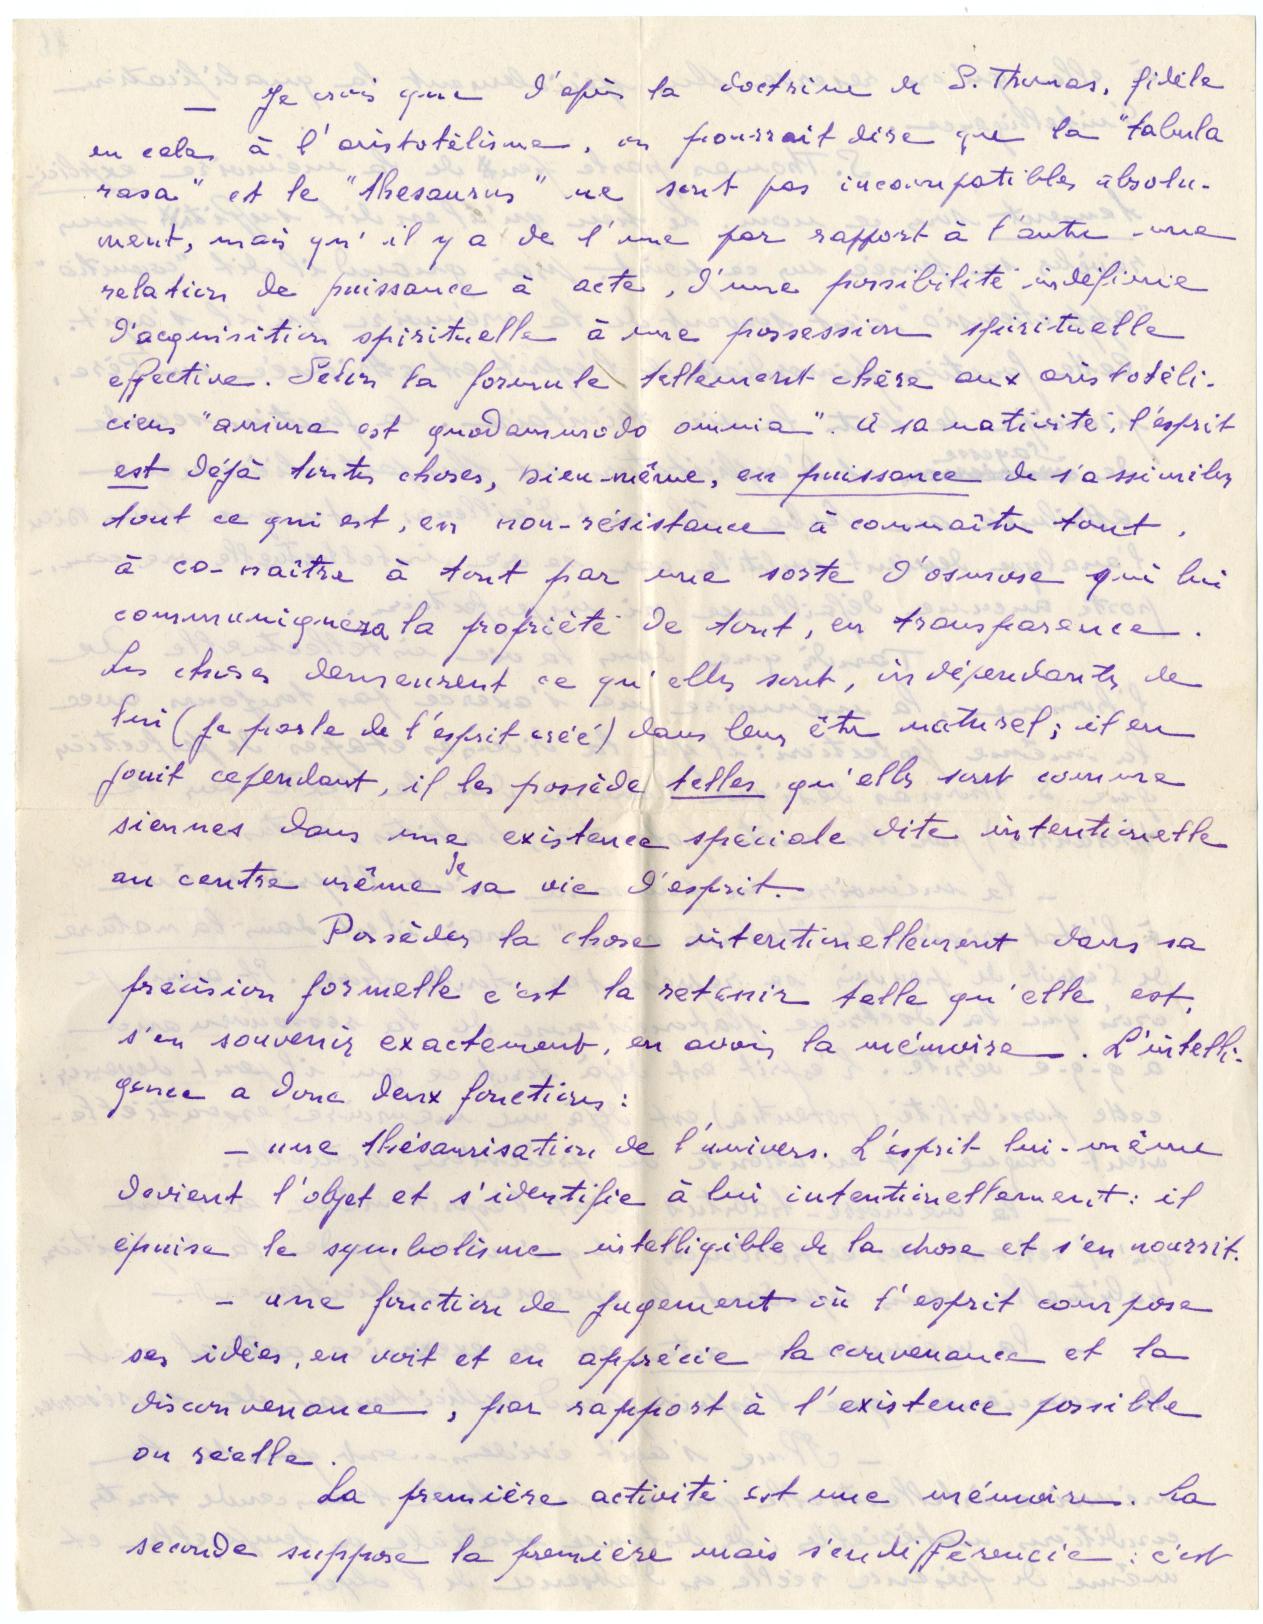 — Je crois que d'après la doctrine de S. Thomas, fidèle
en cela à l'aristotélisme, on pourrait dire que la "tabula
rasa" et le "thesaurus" ne sont pas incompatibles absolu-
ment, mais qu'il y a de l'une par rapport à l'autre une
relation de puissance à acte, d'une possibilité indéfinie
d'acquisition spirituelle à une possession spirituelle
effective. Selon la formule tellement chère aux aristotéli-
ciens "anima est quodammodo omnia". A sa nativité, l'esprit
est déjà toutes choses, Dieu-même, en puissance de s'assimiler
tout ce qui est, en non-résistance à connaître tout,
à co-naître à tout par une sorte d'osmose qui lui
communiquera la propriété de tout, en transparence.
Les choses demeurent ce qu'elles sont, indépendantes de
lui (je parle de l'esprit créé) dans leur être naturel; il en
jouit cependant, il les possède telles qu'elles sont comme
siennes dans une existence spéciale dite intentionelle
au centre même de sa vie d'esprit.
Posséder la chose intentionellement dans sa
précision formelle c'est la retenir telle qu'elle est,
s'en souvenir exactement, en avoir la mémoire. L'intelli-
gence a donc deux fonctions :
— une thésaurisation de l'univers. L'esprit lui-même
devient l'objet et s'identifie à lui intentionellement : il
épuise le symbolisme intelligible de la chose et s'en nourrit.
— une fonction de jugement où l'esprit compose
ses idées, en voit et en apprécie la convenance et la
disconvenance, par rapport à l'existence possible
ou réelle.
La première activité est une mémoire. La
seconde suppose la première mais s'en différencie : c'est